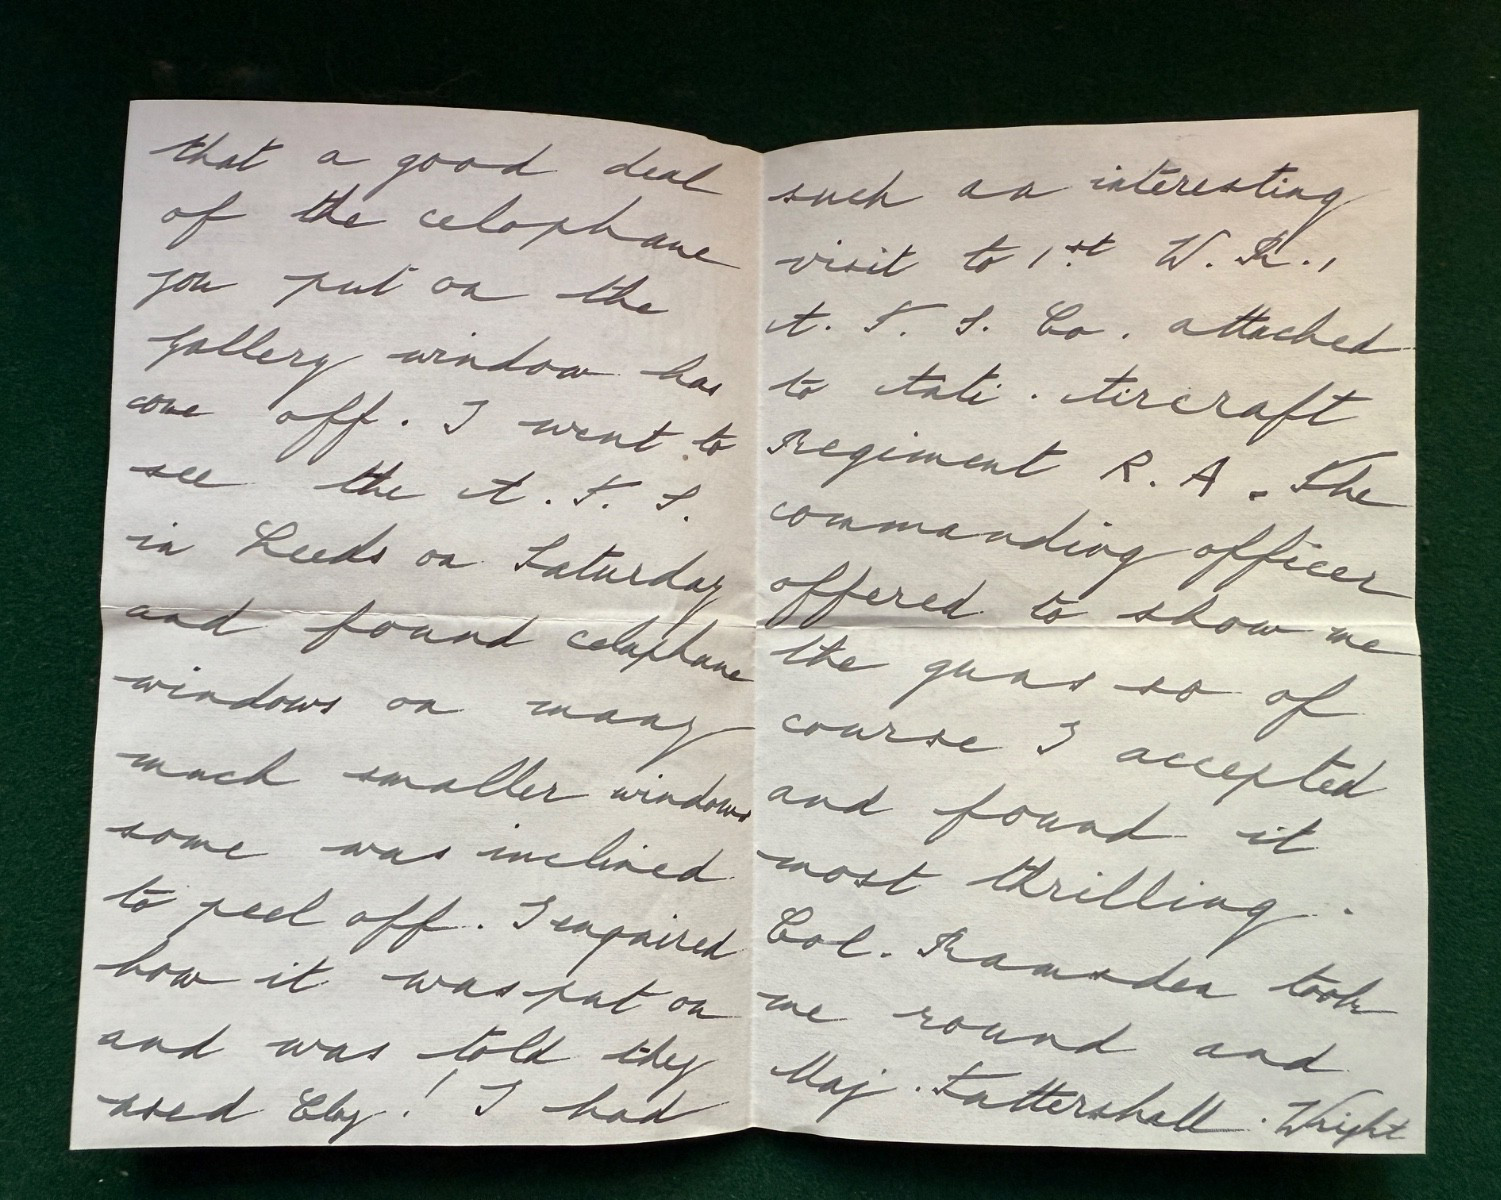 that a good deal
of the celophane
you put on the
gallery window has
come off. I went to
see the A. T. S.
in Leeds on Saturday
and found celophane
windows on many
much smaller windows
some was inclined
to peel off. I enquired
how it was put on
and was told they
used
! I had
such an interesting
visit to 1st W. R.,
A. T. S. Co. attached
to Anti. Aircraft
Regiment R. A. The
commanding officer
offered to show me
the guns so of
course I accepted
and found it
most thrilling.
Col. Ramsden took
me round and
Maj. Tattershall. Wright